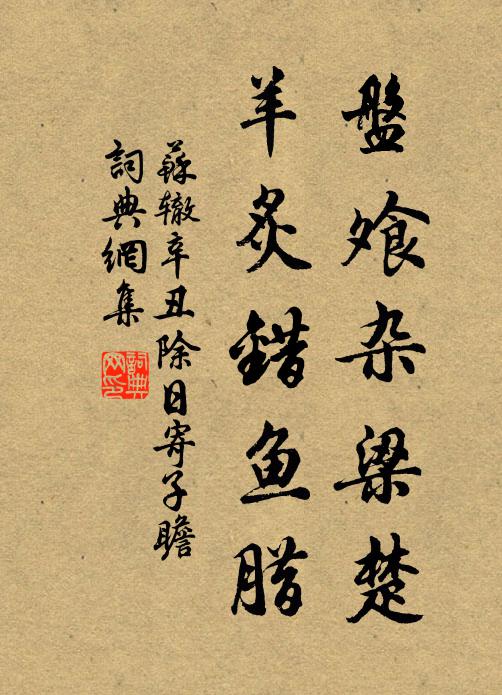 盤飧杂梁楚
羊炙錯鱼腊
蘇辙辛丑除日寄子瞻
詞典網集
詞典网印